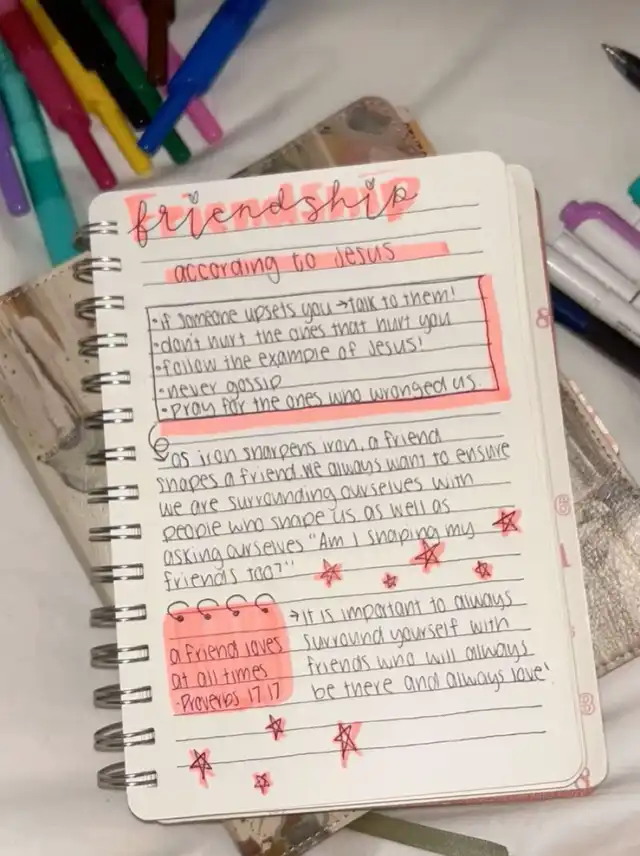 friendship
according to Jesus
• if someone upsets you → talk to them!
• don't hurt the ones that hurt you
• follow the example of Jesus!
• never gossip
• pray for the ones who wronged us.
as iron sharpens iron, a friend
shapes a friend. we always want to ensure
we are surrounding ourselves with
people who shape us as well as
asking ourselves "Am I shaping my
friends too?"
a friend loves
at all times
· Proverbs 17:17
→ it is important to always
surround yourself with
friends who will always
be there and always love!